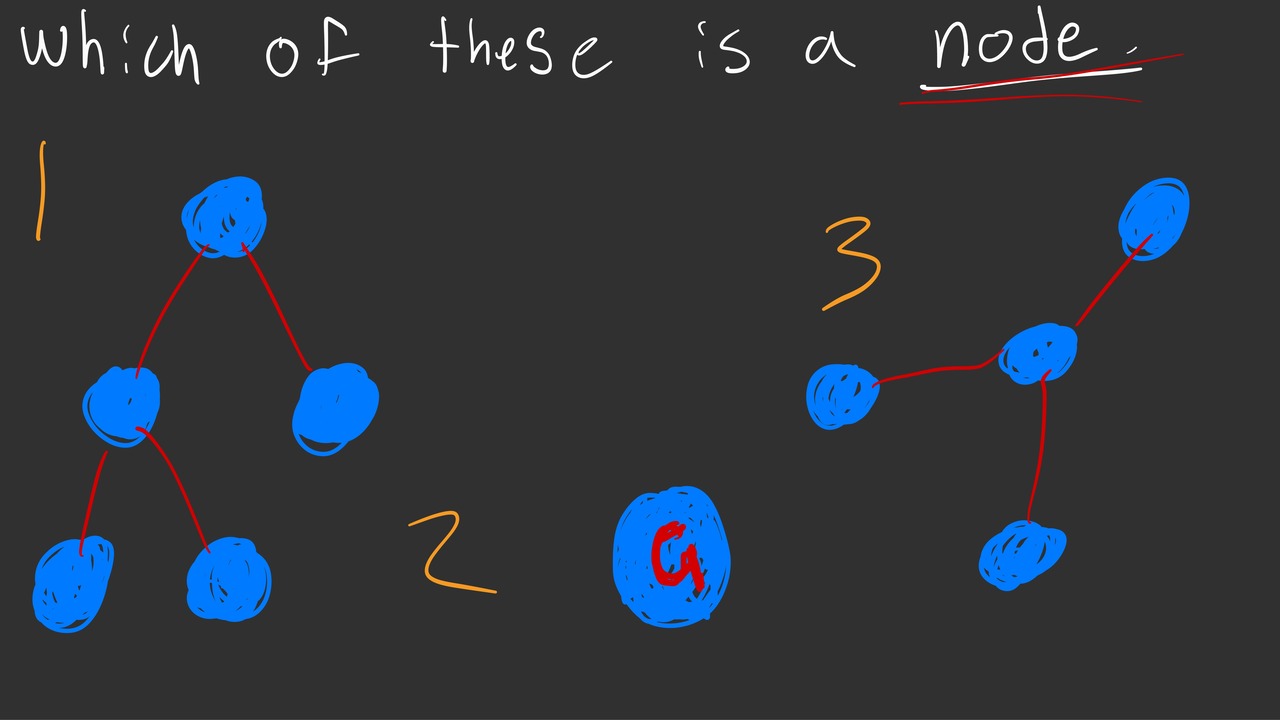 which of these is a node.
1
3
2
G